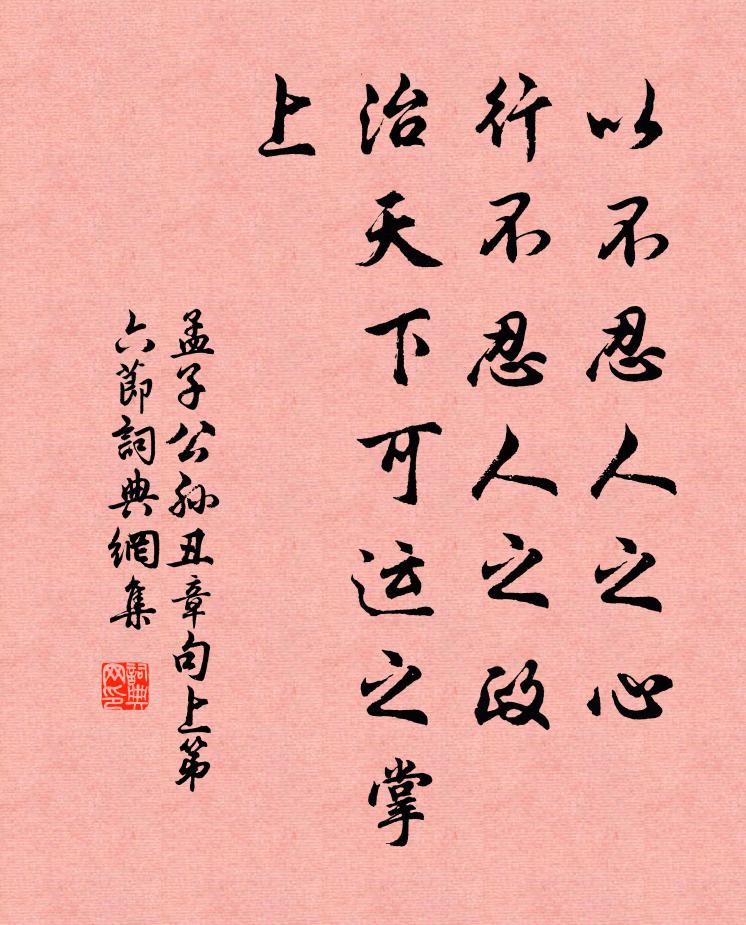 以不忍人之心
行不忍人之政
治天下可运之掌
上
孟子公孙丑章句上第
六節詞典網集
詞典
网印